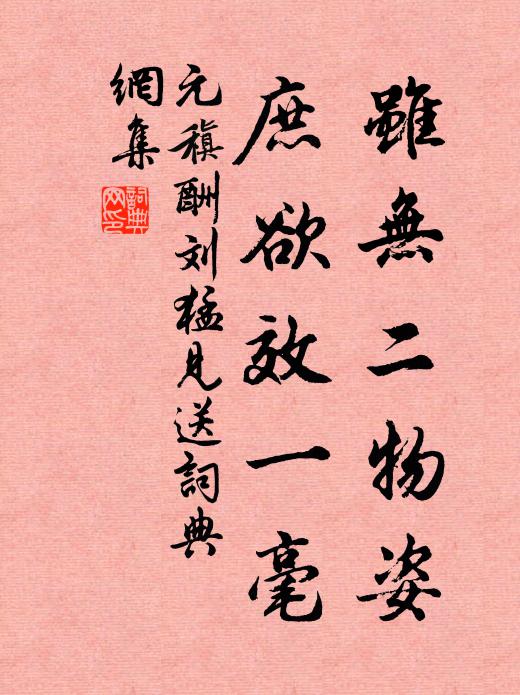 雖無二物姿
庶欲效一毫
元稹酬刘猛見送詞典
網集
詞典網印